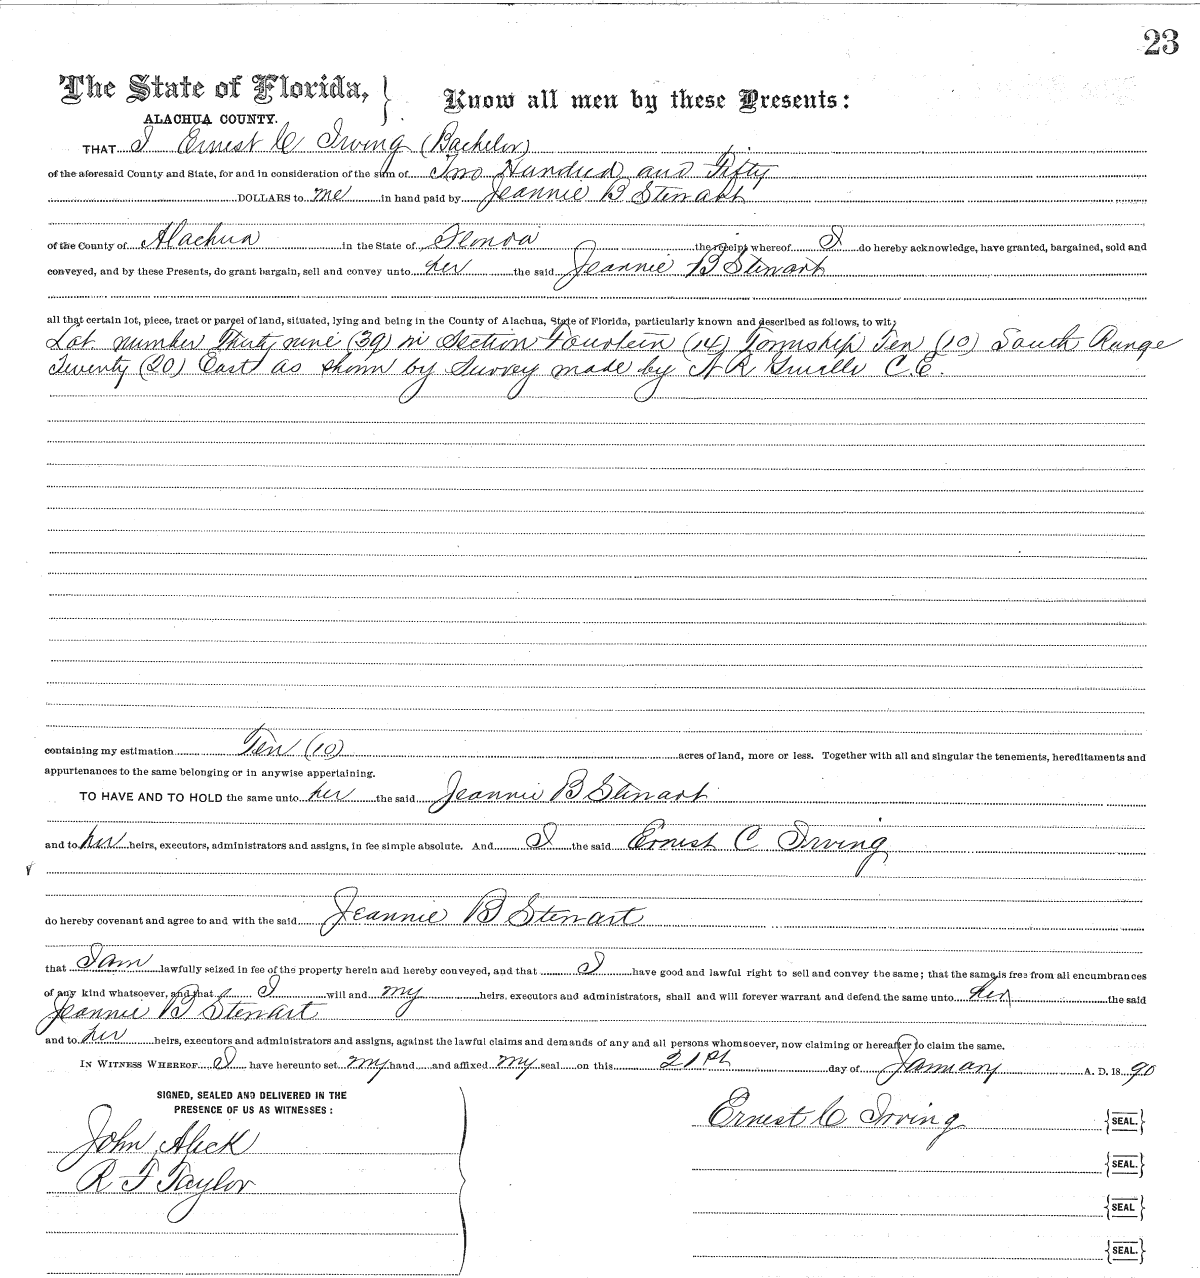 23
The State of Florida, } Know all men by these Presents:
ALACHUA COUNTY.
THAT I Ernest C Irving (Bachelor)
of the aforesaid County and State, for and in consideration of the sum of Two Hundred and Fifty
DOLLARS to me in hand paid by Jeannie B Stewart
of the County of Alachua in the State of Florida the receipt whereof I do hereby acknowledge, have granted, bargained, sold and
conveyed, and by these Presents, do grant bargain, sell and convey unto her the said Jeannie B Stewart
all that certain lot, piece, tract or parcel of land, situated, lying and being in the County of Alachua, State of Florida, particularly known and described as follows, to wit;
Lot number Thirty nine (39) in Section Fourteen (14) Township Ten (10) South Range
Twenty (20) East as shown by Survey made by A R C.E.
containing my estimation Ten (10) acres of land, more or less. Together with all and singular the tenements, hereditaments and
appurtenances to the same belonging or in anywise appertaining.
TO HAVE AND TO HOLD the same unto her the said Jeannie B Stewart
and to her heirs, executors, administrators and assigns, in fee simple absolute. And I the said Ernest C Irving
do hereby covenant and agree to and with the said Jeannie B Stewart
that I am lawfully seized in fee of the property herein and hereby conveyed, and that I have good and lawful right to sell and convey the same; that the same is free from all encumbrances
of any kind whatsoever, and that I will and my heirs, executors and administrators, shall and will forever warrant and defend the same unto her the said
Jeannie B Stewart
and to her heirs, executors and administrators and assigns, against the lawful claims and demands of any and all persons whomsoever, now claiming or hereafter to claim the same.
IN WITNESS WHEREOF I have hereunto set my hand and affixed my seal on this 21st day of January A. D. 1890
SIGNED, SEALED AND DELIVERED IN THE
PRESENCE OF US AS WITNESSES:
Ernest C Irving {SEAL.}
John Alick
{SEAL.}
R F Taylor
{SEAL}
{SEAL.}